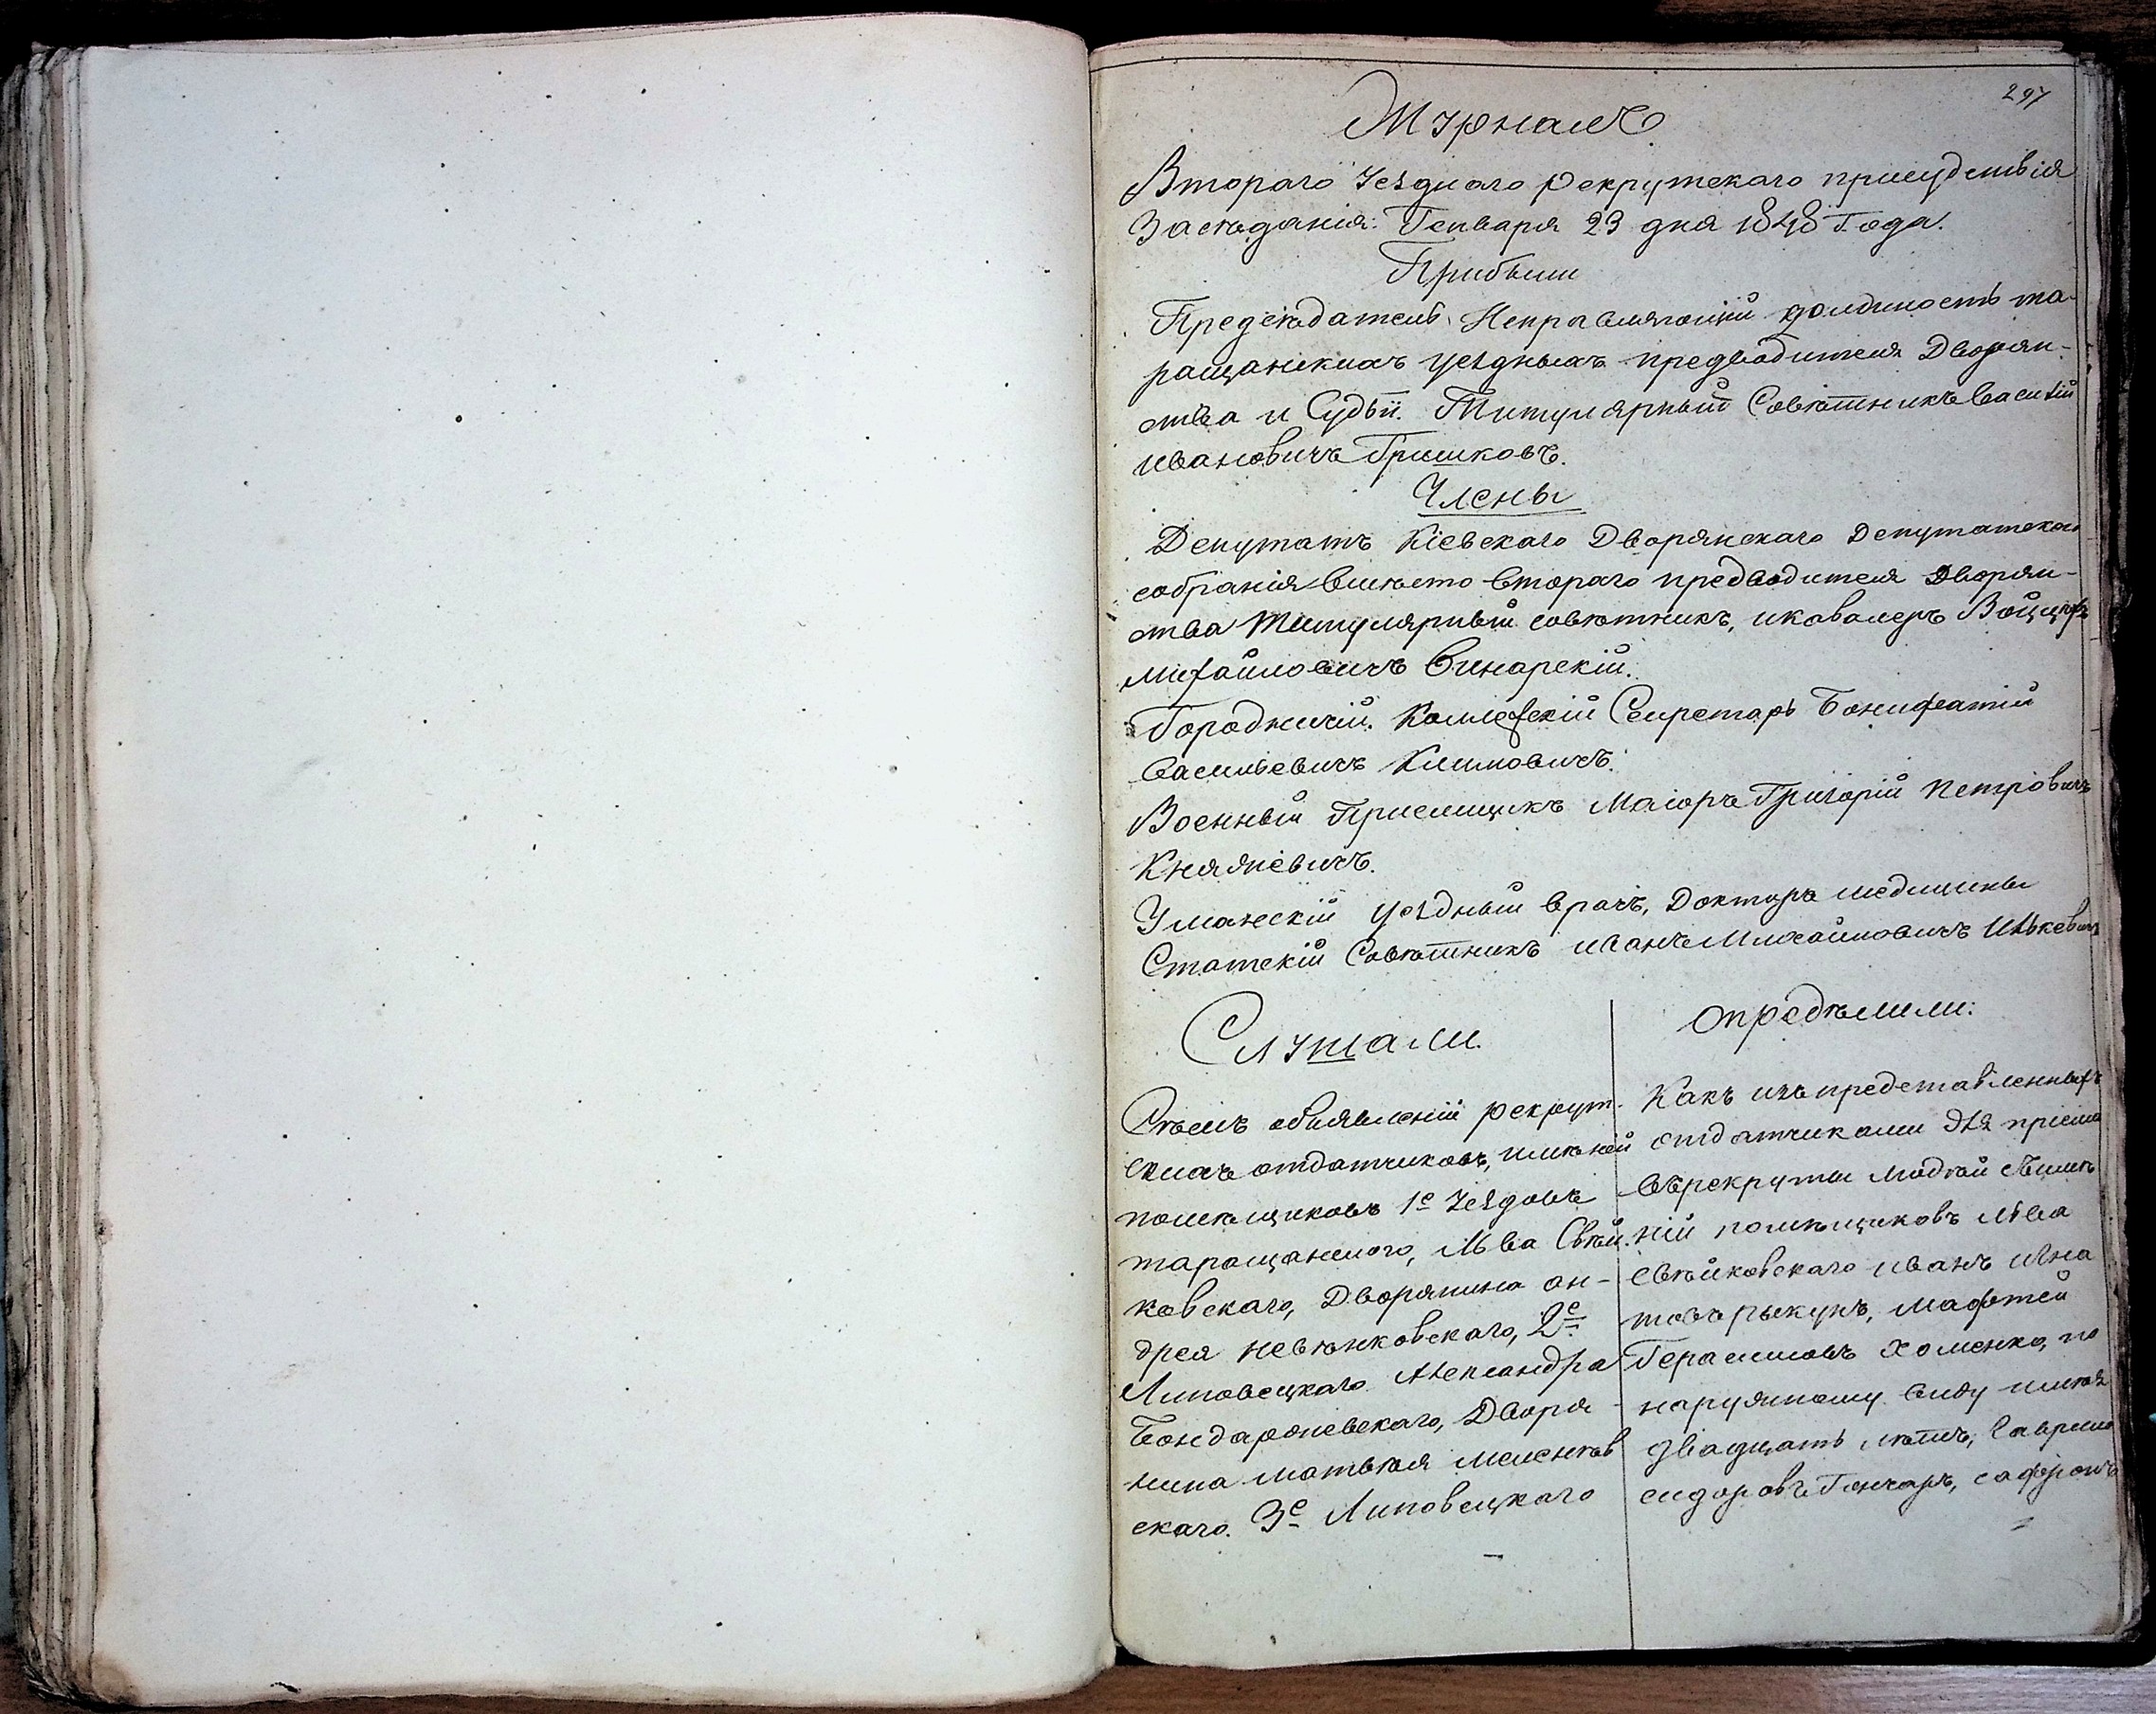 297
Журналъ
Втораго Уезднаго рекрутскаго присудствія
Заседанія: Генваря 23 дня 1848 Года.
Прибыли
Председатель, Исправляющій должность та-
ращанскихъ уездныхъ предводителя Дворян-
ства и Судьи. Титулярный Советникъ Василій
Ивановичъ Гришковъ.
Члены
Депутатъ Кіевскаго Дворянскаго Депутатскаго
собранія вместо втораго предводителя Дворян-
ства Титулярный советникъ, и кавалеръ
Михайловичъ Винарскій.
Городничій. Коллежскій Секретарь Бонифатій
Васильевичъ Климовичъ.
Военный Пріемщикъ Маіоръ Григорій Петровичъ
Княжевичъ.
Уманскій уездный врачъ, Докторъ медицины
Статскій Советникъ Иванъ Михайловичъ
Слушали.
Семь объявленій рекрут-
скихъ отдатчиковъ, именій
помещиковъ 1е Уездовъ
таращанского, Льва Свей-
ковскаго, Дворянина Ан-
дрея Невенковскаго, 2е
Липовецкаго Александра
Бондаровскаго, Дворя-
нина Матвея Меленев
скаго. 3е Липовецкаго
Определили:
Какъ изъ представленныхъ
отдатчиками для пріема
въ рекруты людей Именій
ній помещиковъ Льва
Свейковскаго Иванъ Игна
товъ Рыкунъ, Мафтей
Герасимовъ Хоменко, по
наружному виду имея
двадцать летъ, Гаврило
Сидоровъ Гончаръ, Сафронъ